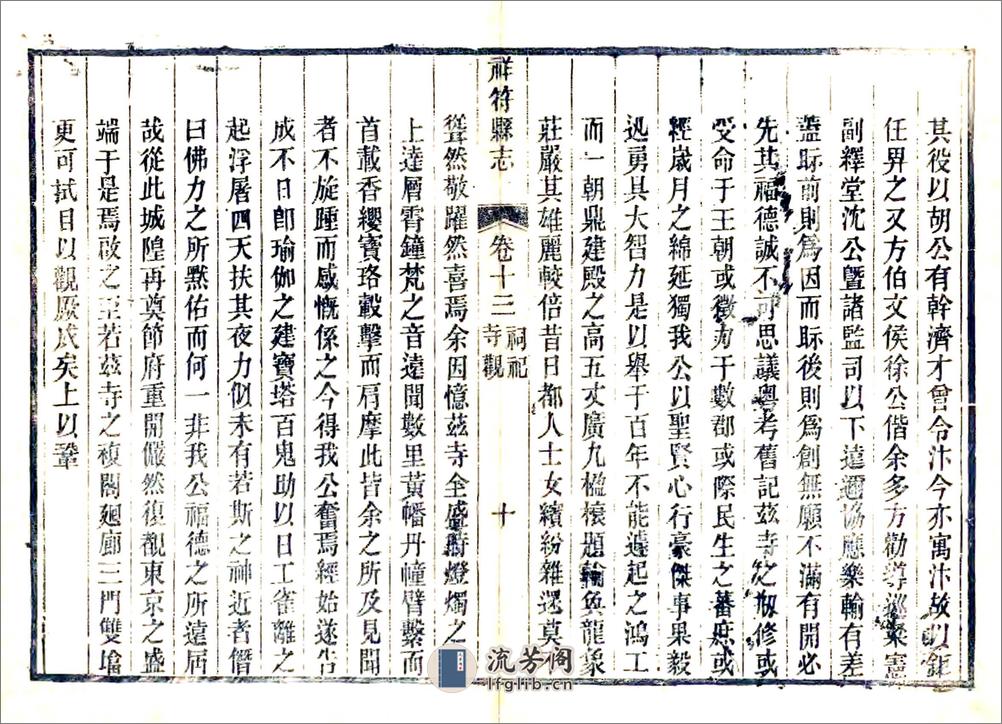 其役以胡公有幹濟才曾令汴今亦寓汴故以鉅
任畀之又方伯文侯徐公偕余多方勸導巡察憲
副釋堂沈公暨諸監司以下遠邇協應樂輸有差
蓋眎前則為因而眎後則為創無願不滿有開必
先其福德誠不可思議粵考舊記茲寺之刱修或
受命于王朝或徵力于數郡或際民生之蕃庶或
經歲月之綿延獨我公以聖賢心行豪傑事果毅
迅勇具大智力是以舉千百年不能遽起之鴻工
而一朝鼎建殿之高五丈廣九楹榱題輪奐龍象
莊嚴其雄麗較倍昔日都人士女繽紛雜遝莫
祥符縣志
卷十三
祠祀
寺觀
十
聳然敬躍然喜焉余因憶茲寺全盛時燈燭之
上達層霄鐘梵之音遠聞數里黃幡丹幢臂繫而
首載香纓寶珞轂擊而肩摩此皆余之所及見聞
者不旋踵而感慨係之今得我公奮焉經始遂告
成不日卽瑜伽之建寶塔百鬼助以日工雀離之
起浮屠四天扶其夜力似未有若斯之神近者僭
曰佛力之所黙佑而何一非我公福德之所遠屆
哉從此城隍再奠節府重開儼然復觀東京之盛
端于是焉啟之至若茲寺之複閣廻廊三門雙塔
更可試目以觀厥成矣上以鞏
流芳阁
lfglib.cn